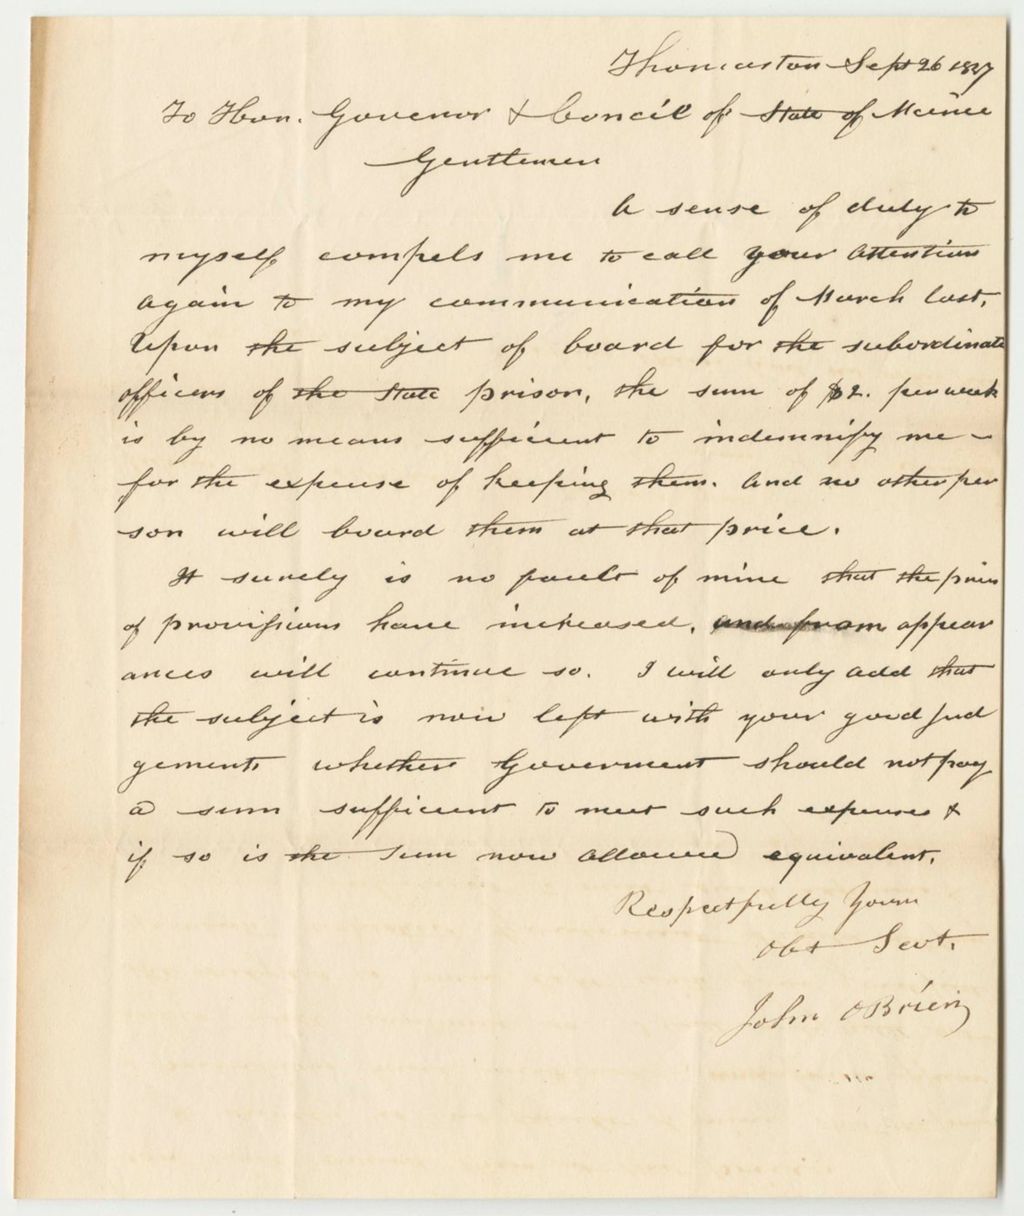 Thomaston Sept 26 1837
To Hon. Govenor & Concil of State of Maine
Gentlemen
A sense of duty to
myself compels me to call your attention
again to my communication of March last,
Upon the subject of board for the subordinate
officers of the State prison, the sum of $2. per week
is by no means sufficient to indemnify me
for the expense of keeping them. And no other per
son will board them at that price.
It surely is no fault of mine that the prices
of provisions have increased, and from appear
ances will continue so. I will only add that
the subject is now left with your good jud
gements whether Goverment should not pay
a sum sufficient to meet such expenses &
if so is the sum now allowed equivalent.
Respectfully Yours
Obt Sevt.
John OBrien